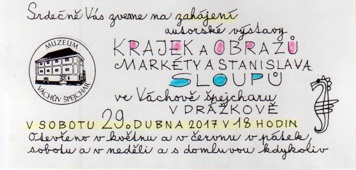 Srdečně Vás zveme na zahájení
autorské výstavy
KRAJEK A OBRAZŮ
MARKÉTY A STANISLAVA
SLOUPŮ
ve Váchově špejcharu
V DRAŽKOVĚ
V SOBOTU 29. DUBNA 2017 V 18 HODIN
Otevřeno v květnu a v červnu v pátek,
sobotu a v neděli a s domluvou kdykoliv
MUZEUM
VÁCHŮV ŠPEJCHAR